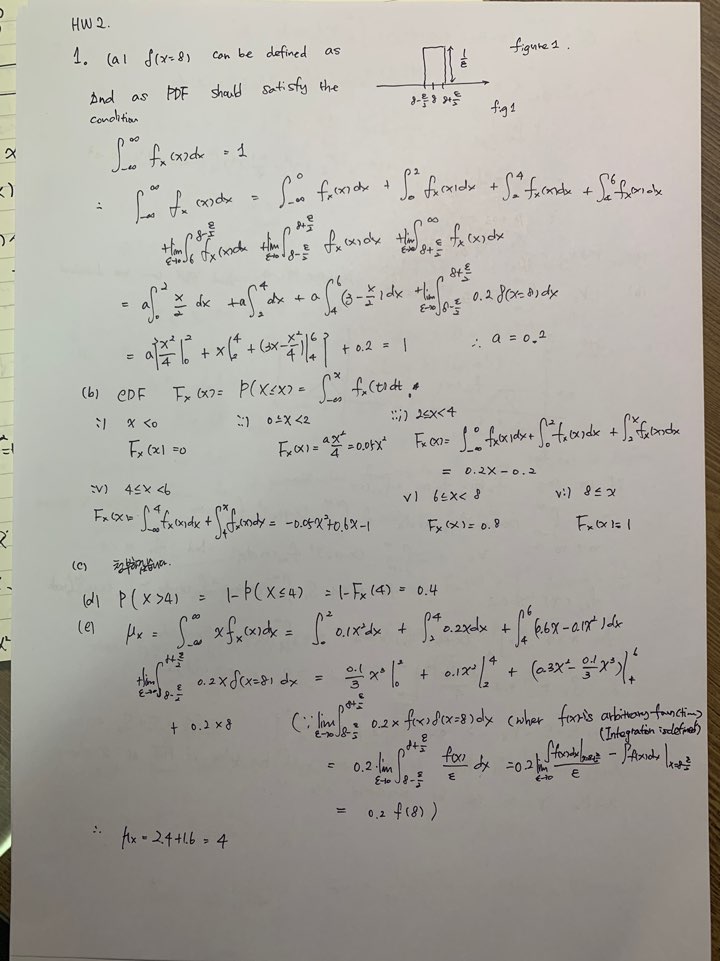 HW 2.
1. (a) δ(x=8) can be defined as figure 1.
And as PDF should satisfy the
condition
1/ε
8-ε/2 8 8+ε/2
fig 1
∫_{-∞}^{∞} f_x(x)dx = 1
∴ ∫_{-∞}^{∞} f_x(x)dx = ∫_{-∞}^{0} f_x(x)dx + ∫_0^2 f_x(x)dx + ∫_2^4 f_x(x)dx + ∫_4^6 f_x(x)dx
+ lim_{ε→0} ∫_6^{8-ε/2} f_x(x)dx + lim_{ε→0} ∫_{8-ε/2}^{8+ε/2} f_x(x)dx + lim_{ε→0} ∫_{8+ε/2}^{∞} f_x(x)dx
= a∫_0^2 x/2 dx + a∫_2^4 dx + a∫_4^6 (3-x/2)dx + lim_{ε→0} ∫_{8-ε/2}^{8+ε/2} 0.2 δ(x=8)dx
= a{x²/4|_0^2 + x|_2^4 + (3x-x²/4)|_4^6} + 0.2 = 1 ∴ a = 0.2
(b) CDF F_x(x) = P(X≤x) = ∫_{-∞}^{x} f_x(t)dt.
i) x<0 ii) 0≤x<2 iii) 2≤x<4
F_x(x)=0 F_x(x) = ax²/4 = 0.05x² F_x(x) = ∫_{-∞}^{0} f_x(x)dx + ∫_0^2 f_x(x)dx + ∫_2^x f_x(x)dx
= 0.2x - 0.2
iv) 4≤x<6 v) 6≤x<8 vi) 8≤x
F_x(x) = ∫_{-∞}^{4} f_x(x)dx + ∫_4^x f_x(x)dx = -0.05x²+0.6x-1 F_x(x) = 0.8 F_x(x) = 1
(c) 첨부하였습니다.
(d) P(X>4) = 1-P(X≤4) = 1-F_x(4) = 0.4
(e) μ_x = ∫_{-∞}^{∞} x f_x(x)dx = ∫_0^2 0.1x²dx + ∫_2^4 0.2xdx + ∫_4^6 (0.6x-0.1x²)dx
+ lim_{ε→0} ∫_{8-ε/2}^{8+ε/2} 0.2x δ(x=8)dx = 0.1/3 x³|_0^2 + 0.1x²|_2^4 + (0.3x²-0.1/3 x³)|_4^6
+ 0.2×8 (∵ lim_{ε→0} ∫_{8-ε/2}^{8+ε/2} 0.2 × f(x) δ(x=8)dx (wher f(x) is arbitrary function)
(Integration is defined)
= 0.2·lim_{ε→0} ∫_{8-ε/2}^{8+ε/2} f(x)/ε dx = 0.2 lim_{ε→0} (∫f(x)dx|_{x=8+ε/2} - ∫f(x)dx|_{x=8-ε/2})/ε
= 0.2 f(8) )
∴ μ_x = 2.4+1.6 = 4